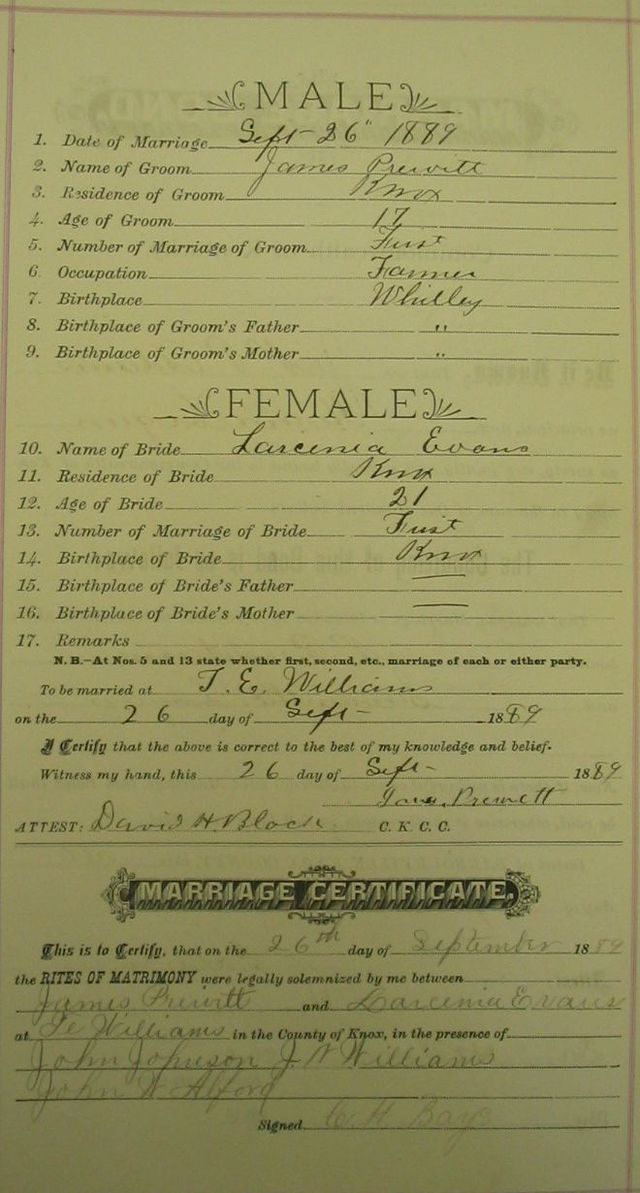 MALE
1. Date of Marriage Sept 26" 1889
2. Name of Groom James Prewitt
3. Residence of Groom Knox
4. Age of Groom 17
5. Number of Marriage of Groom First
6. Occupation Farmer
7. Birthplace Whitley
8. Birthplace of Groom's Father "
9. Birthplace of Groom's Mother "
FEMALE
10. Name of Bride Larcenia Evans
11. Residence of Bride Knox
12. Age of Bride 21
13. Number of Marriage of Bride First
14. Birthplace of Bride Knox
15. Birthplace of Bride's Father —
16. Birthplace of Bride's Mother —
17. Remarks
N. B.—At Nos. 5 and 13 state whether first, second, etc., marriage of each or either party.
To be married at T. E. Williams
on the 26 day of Sept 1889
I Certify that the above is correct to the best of my knowledge and belief.
Witness my hand, this 26 day of Sept 1889
Prewitt
ATTEST: David H. Black C. K. C. C.
MARRIAGE CERTIFICATE.
This is to Certify, that on the 26th day of September 1889
the RITES OF MATRIMONY were legally solemnized by me between
James Prewitt and Larcenia Evans
at Williams in the County of Knox, in the presence of
John Johnson J Williams
John W Alford
Signed